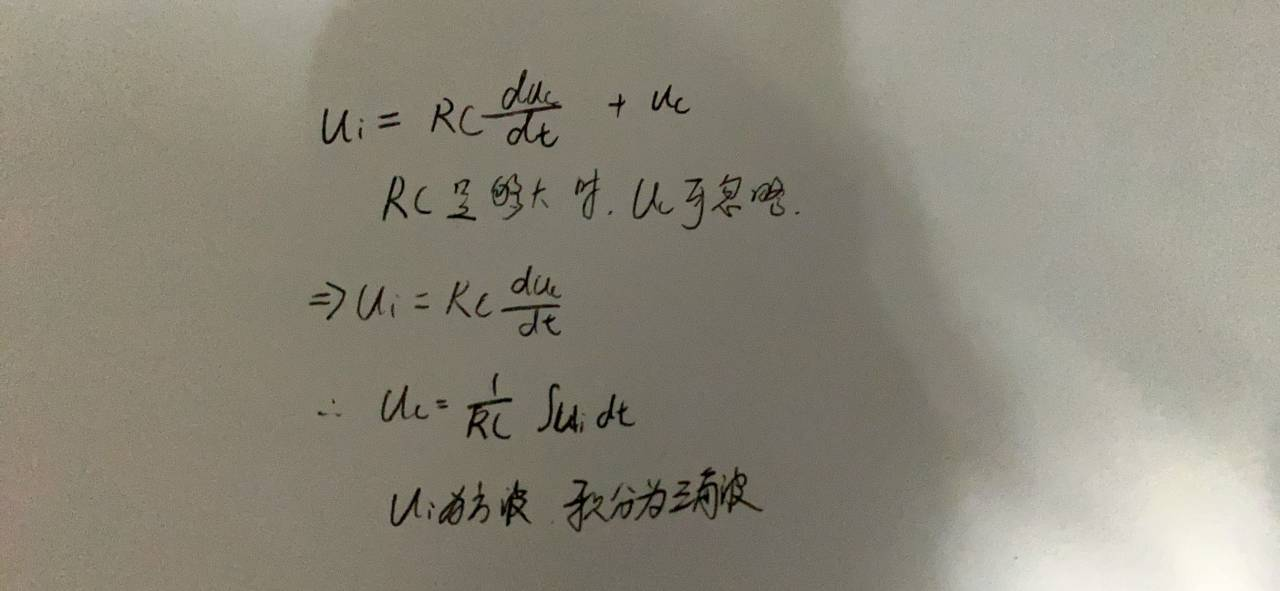 Ui = RC duc/dt + uc
RC足够大时. Uc可忽略.
⇒ Ui = RC duc/dt
∴ Uc = 1/RC ∫Ui dt
Ui为方波 积分为三角波